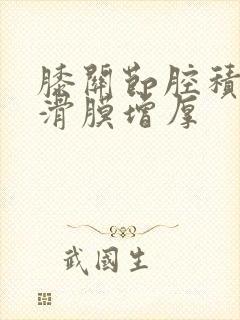 膝關節腔積
滑膜增厚
武國生